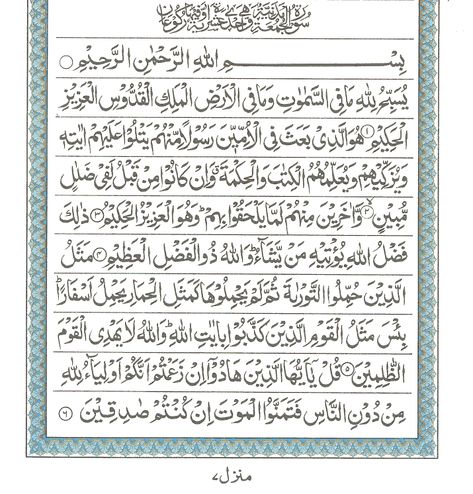 سُورَةُ الْجُمُعَةِ مَدَنِيَّةٌ وَهِيَ إِحْدَى عَشْرَةَ آيَةً وَفِيهَا رُكُوعَانِ
بِسْمِ اللهِ الرَّحْمٰنِ الرَّحِيْمِ
يُسَبِّحُ لِلّٰهِ مَا فِي السَّمٰوٰتِ وَمَا فِي الْاَرْضِ الْمَلِكِ الْقُدُّوْسِ الْعَزِيْزِ
الْحَكِيْمِ ۱ هُوَ الَّذِيْ بَعَثَ فِي الْاُمِّيّٖنَ رَسُوْلًا مِّنْهُمْ يَتْلُوْا عَلَيْهِمْ اٰيٰتِهٖ
وَيُزَكِّيْهِمْ وَيُعَلِّمُهُمُ الْكِتٰبَ وَالْحِكْمَةَ وَاِنْ كَانُوْا مِنْ قَبْلُ لَفِيْ ضَلٰلٍ
مُّبِيْنٍ ۲ وَّاٰخَرِيْنَ مِنْهُمْ لَمَّا يَلْحَقُوْا بِهِمْ ؕ وَهُوَ الْعَزِيْزُ الْحَكِيْمُ ۳ ذٰلِكَ
فَضْلُ اللهِ يُؤْتِيْهِ مَنْ يَّشَآءُ ؕ وَاللهُ ذُو الْفَضْلِ الْعَظِيْمِ ۴ مَثَلُ
الَّذِيْنَ حُمِّلُوا التَّوْرٰىةَ ثُمَّ لَمْ يَحْمِلُوْهَا كَمَثَلِ الْحِمَارِ يَحْمِلُ اَسْفَارًا ؕ
بِئْسَ مَثَلُ الْقَوْمِ الَّذِيْنَ كَذَّبُوْا بِاٰيٰتِ اللهِ ؕ وَاللهُ لَا يَهْدِي الْقَوْمَ
الظّٰلِمِيْنَ ۵ قُلْ يٰٓاَيُّهَا الَّذِيْنَ هَادُوْٓا اِنْ زَعَمْتُمْ اَنَّكُمْ اَوْلِيَآءُ لِلّٰهِ
مِنْ دُوْنِ النَّاسِ فَتَمَنَّوُا الْمَوْتَ اِنْ كُنْتُمْ صٰدِقِيْنَ ۶
منزل ۷